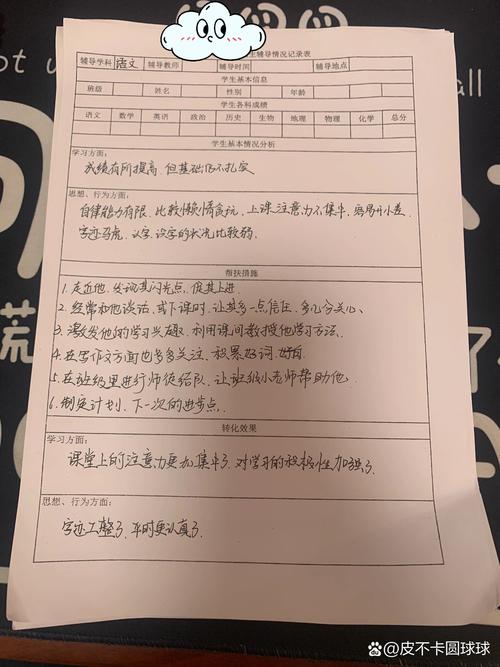 生辅导情况记录表
辅导学科 语文 辅导教师 辅导时间 辅导地点
学生基本信息
班级 姓名 性别 年龄
学生各科成绩
语文 数学 英语 政治 历史 生物 地理 物理 化学 总分
学生基本情况分析
学习方面:
成绩有所提高,但基础仍不扎实
思想、行为方面:
自律能力有限、比较懒惰贪玩,上课注意力不集中,容易开小差
字迹马虎,认字、识字的状况比较弱。
帮扶措施
1.走近他,发现其闪光点,促其上进.
2.经常和他谈话,或下课时,让其多一点信任,多几分关心、
3.激发他的学习兴趣,利用课间教授他学习方法,
4.在写作文方面也多多关注,积累好词、好句
5.在班级里进行师徒结队,让班级小老师帮助他,
6.制定计划,下一次的进步点,
转化效果
学习方面:
课堂上的注意力更加集中了,对学习的积极性加强了
思想、行为方面:
字迹工整了,平时更认真了.
ot
all
慌
@皮不卡圆球球